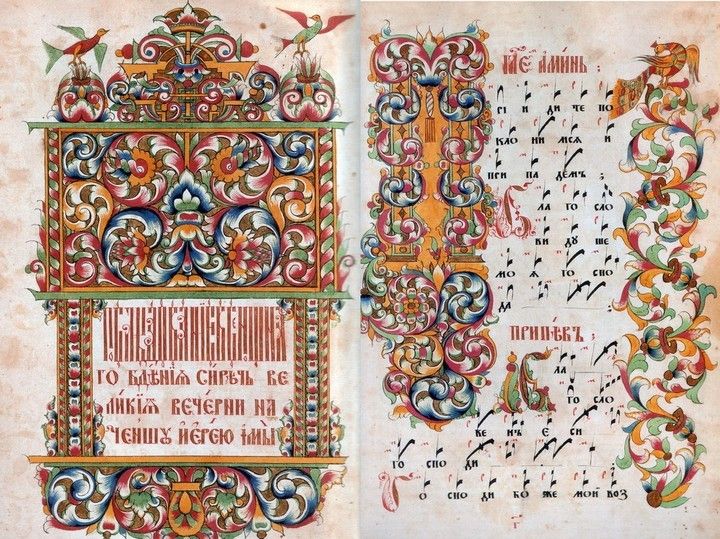 ГО БДѢНІѦ СИРѢЧЬ ВЕ
ЛИКИѦ ВЕЧЕРНИ НА
ЧЕНШꙋ ІЕРЕЮ ІМЫ
ГЛЕ АМИНЬ :
П РІ И ДИ ТЕ ПО
КЛО НИ МСЯ И
ПРИ ПА ДЕМЪ
Б ЛА ГО СЛО
ВИ ДУ ШЕ
МО Я ГО СПО
ДА
ПРИПѢВЪ :
Б ЛА
ГО СЛО
ВЕ НЪ Е СИ
ГО СПО ДИ
Г О СПО ДИ БО ЖЕ МОЙ ВОЗ